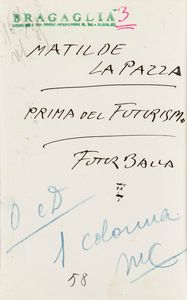 BRAGAGLIA
3
MATILDE
LA PAZZA
PRIMA DEL FUTURISMO
FUTUR BALLA
1 colonna
MC
58